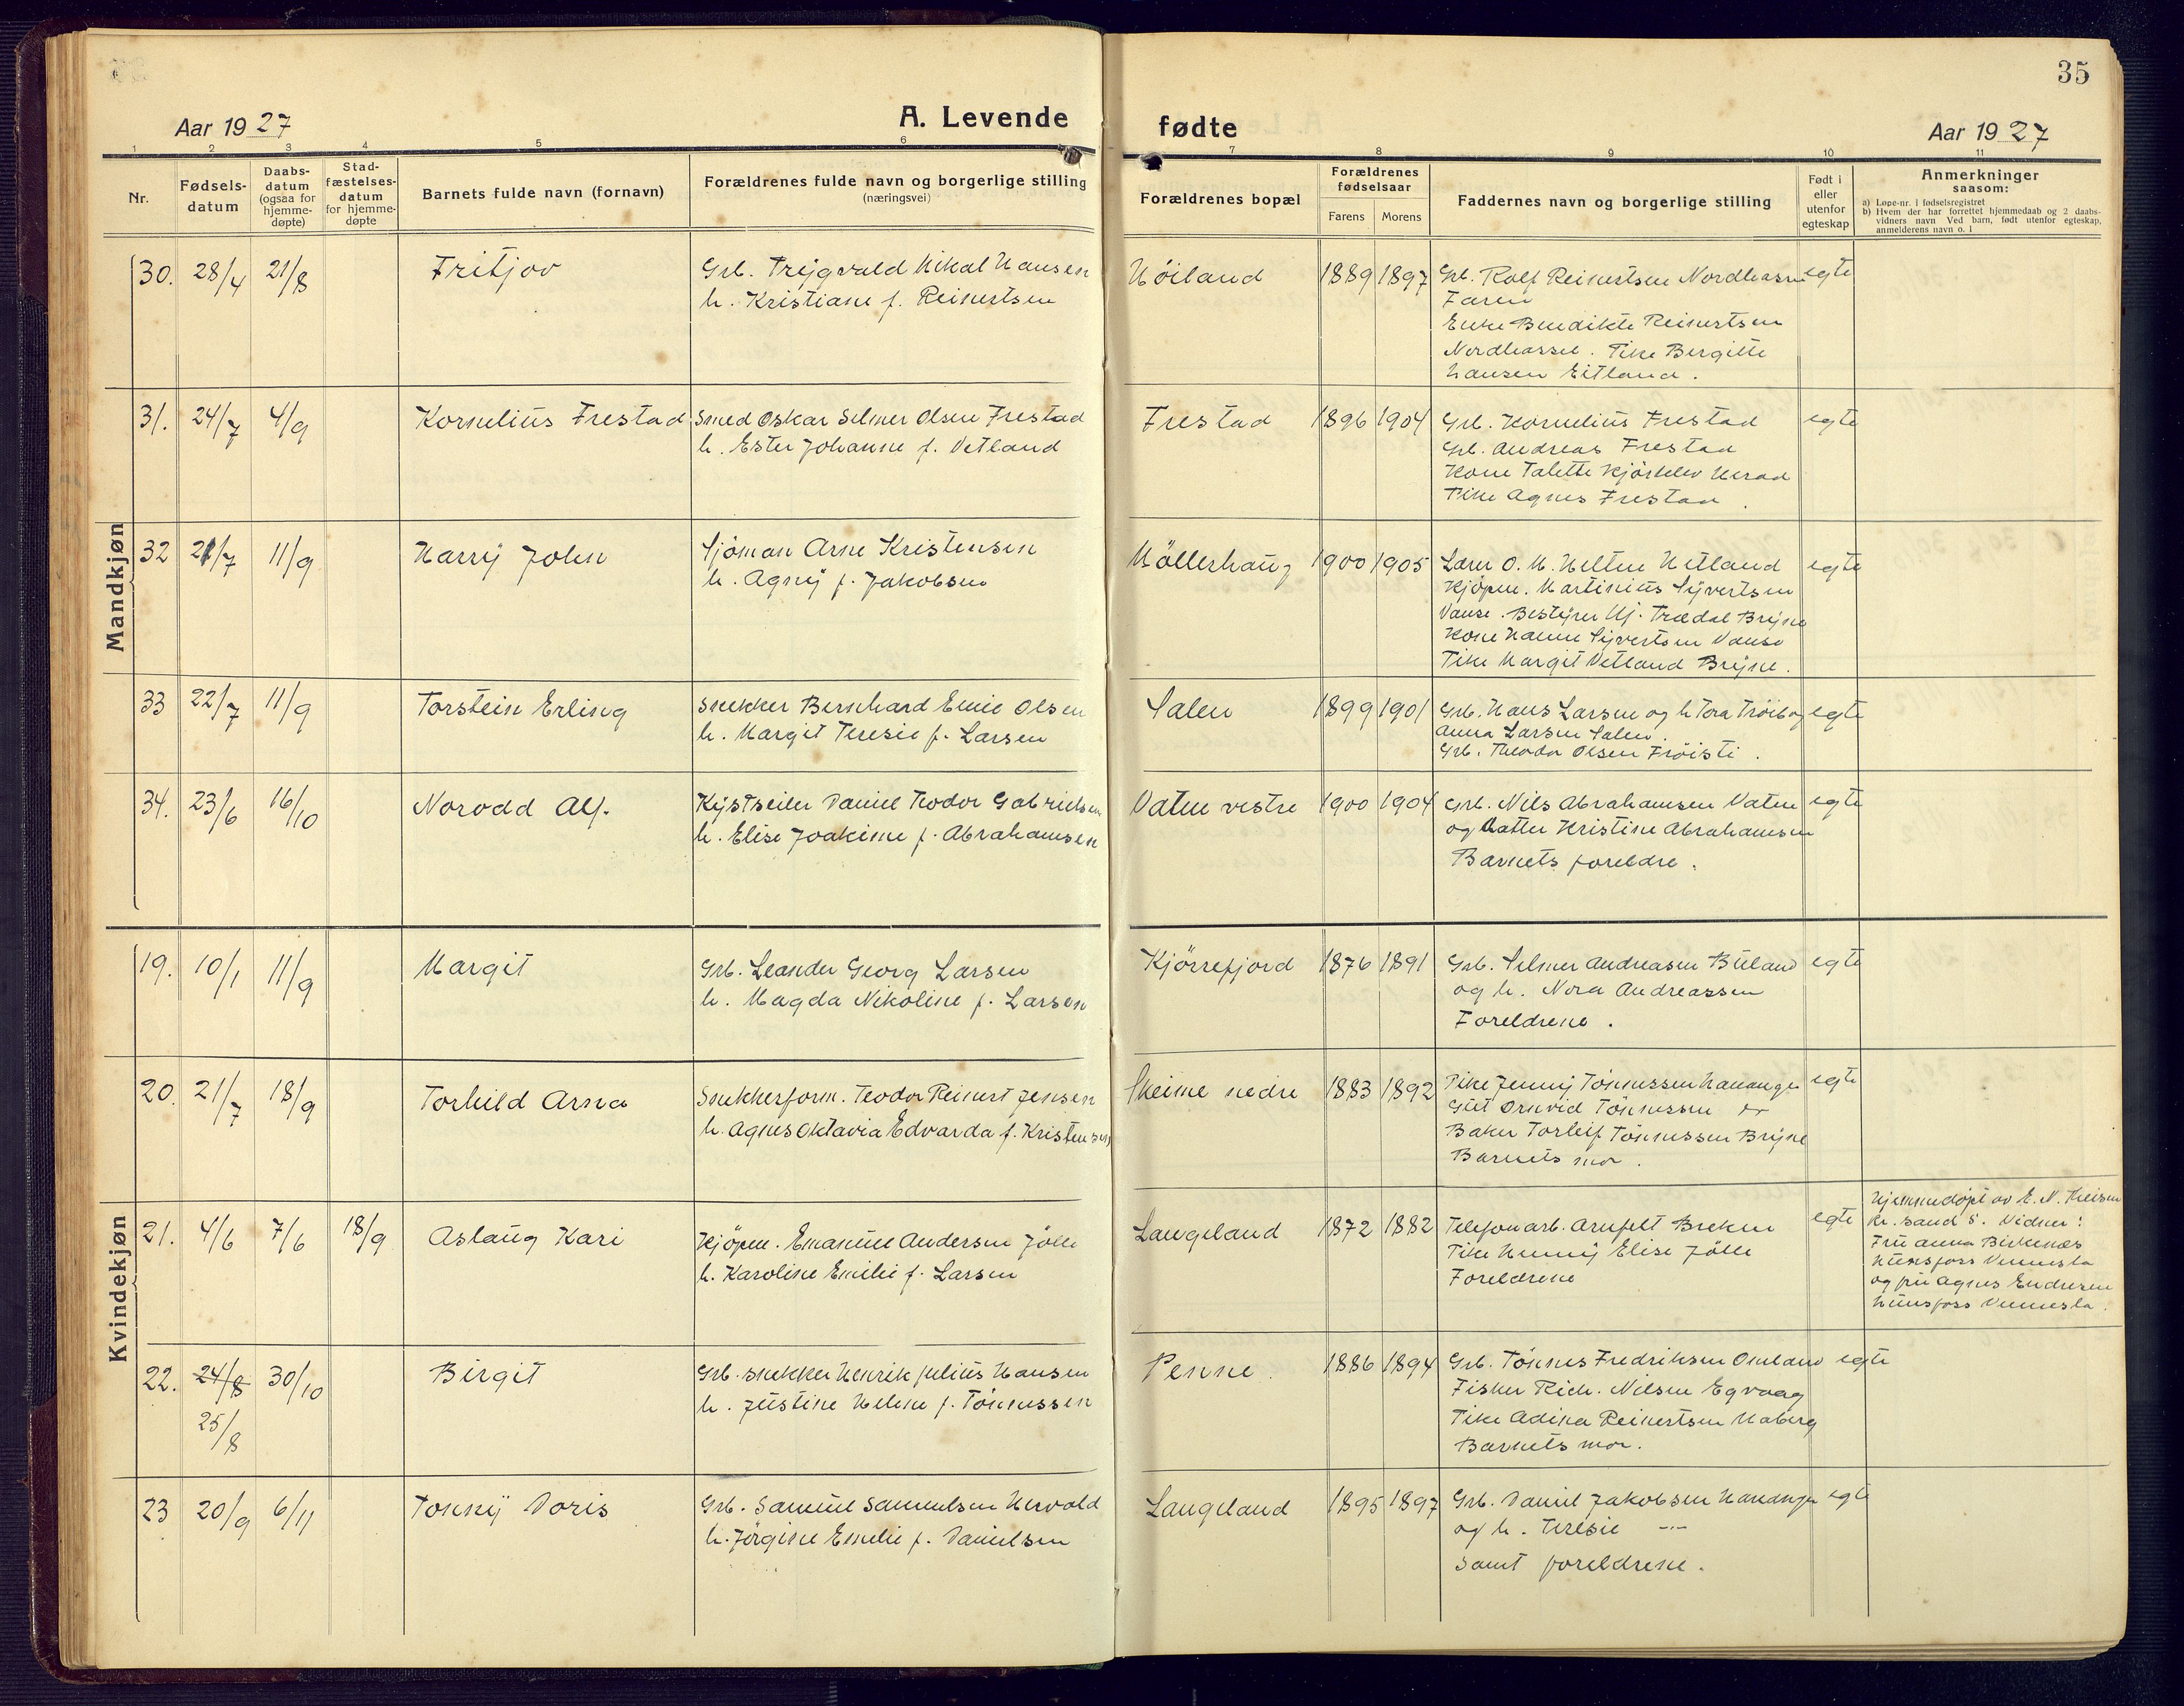 35
Aar 1927
A. Levende
fødte
Aar 1927
1 2 3 4 5 6 7 8 9 10 11
Nr.
Fødsels-
datum
Daabs-
datum
(ogsaa for
hjemme-
døpte)
Stad-
fæstelses-
datum
for hjemme-
døpte
Barnets fulde navn (fornavn)
Forældrenes fulde navn og borgerlige stilling
(næringsvei)
Forældrenes bopæl
Forældrenes
fødselsaar
Farens Morens
Faddernes navn og borgerlige stilling
Født i
eller
utenfor
egteskap
Anmerkninger
saasom:
a) Løpe-nr. i fødselsregistret
b) Hvem der har forrettet hjemmedaab og 2 daabs-
vidners navn Ved barn, født utenfor egteskap,
anmelderens navn o. l
Mandkjøn
30. 28/4 21/8 Fritjov
Grb. Trygvald Mikal Hansen
h. Kristiane f. Reinertsen
Höiland 1889 1897
Grb. Rolf Reinertsen Nordhassel
Faren
Enke Bendikte Reinertsen
Nordhassel. Pike Bergitte
Hansen Eitland.
egte
31. 24/7 4/9 Kornelius Frestad
Smed Oskar Selmer Olsen Frestad
h. Ester Johanne f. Vetland
Frestad 1896 1904
Grb. Kornelius Frestad
Grb. Andreas Frestad
Kone Talette Kjörkelev Herad
Pike Agnes Frestad
egte
32 21/7 11/9 Harry John
Sjöman Arne Kristensen
h. Agny f. Jakobsen
Möllerhaug 1900 1905
Lærer O. M. Helten Hetland
Kjöpm. Martinius Syvertsen
Vanse. Bestyrer Alf. Trædal Bryne
Kone Hanne Syvertsen Vanse
Pike Margit Vetland Bryne.
egte
33 22/7 11/9 Torstein Erling
Snekker Bernhard Emil Olsen
h. Margit Teresie f. Larsen
Salen 1899 1901
Grb. Hans Larsen og h Tora Tröib og
Anna Larsen Salen.
Grb. Theodor Olsen Fröisti.
egte
34. 23/6 16/10 Norodd Alf.
Kystseiler Daniel Teodor Gabrielsen
h. Elise Joakime f. Abrahamsen
Vatne vestre 1900 1904
Grb. Nils Abrahamsen Vatne
og datter Kristine Abrahamsen
Barnets foreldre.
egte
Kvindekjøn
19. 10/1 11/9 Margit
Grb. Leander Georg Larsen
h. Magda Nikoline f. Larsen
Kjörrefjord 1876 1891
Grb. Selmer Andreasen Büland
og h. Nora Andreassen
Foreldrene.
egte
20. 21/7 18/9 Torhild Arna
Snekkerform. Teodor Reinert Jensen
h. Agnes Oktavia Edvarda f. Kristensen
Skeime nedre 1883 1892
Pike Jenny Tönnessen Hananger
Gut Ornvid Tönnessen
Baker Torleif Tönnessen Bryne
Barnets mor.
egte
21. 4/6 7/6 18/9 Aslaug Kari
Kjöpm. Emanuel Andersen Jölle
h. Karoline Emilie f. Larsen
Langeland 1872 1882
Telefonarb. Arnfelt Brekne
Pike Henny Elise Jölle
Foreldrene
egte
Hjemmedöpt av E. N.
Kr. sand S. Vidner:
Fru Anna Birkenæs
Hunsfoss Vennesla
og fru Agnes Endresen
Hunsfoss Vennesla.
22. 24/8 30/10 Birgit
25/8
Grb. snekker Henrik Julius Hansen
h. Justine Helene f. Tönnessen
Penne. 1886 1894
Grb. Tönnes Fredriksen Omland
Fisker Rich. Nilsen Egvaag
Pike Adina Reinertsen Haberg
Barnets mor.
egte
23 20/9 6/11 Tonny Doris
Grb. Samuel Samuelsen Hervold
h. Jörgine Emelie f. Danielsen
Langeland 1895 1897
Grb. Daniel Jakobsen Hananger
og h. Teresie —"—
samt foreldrene.
egte